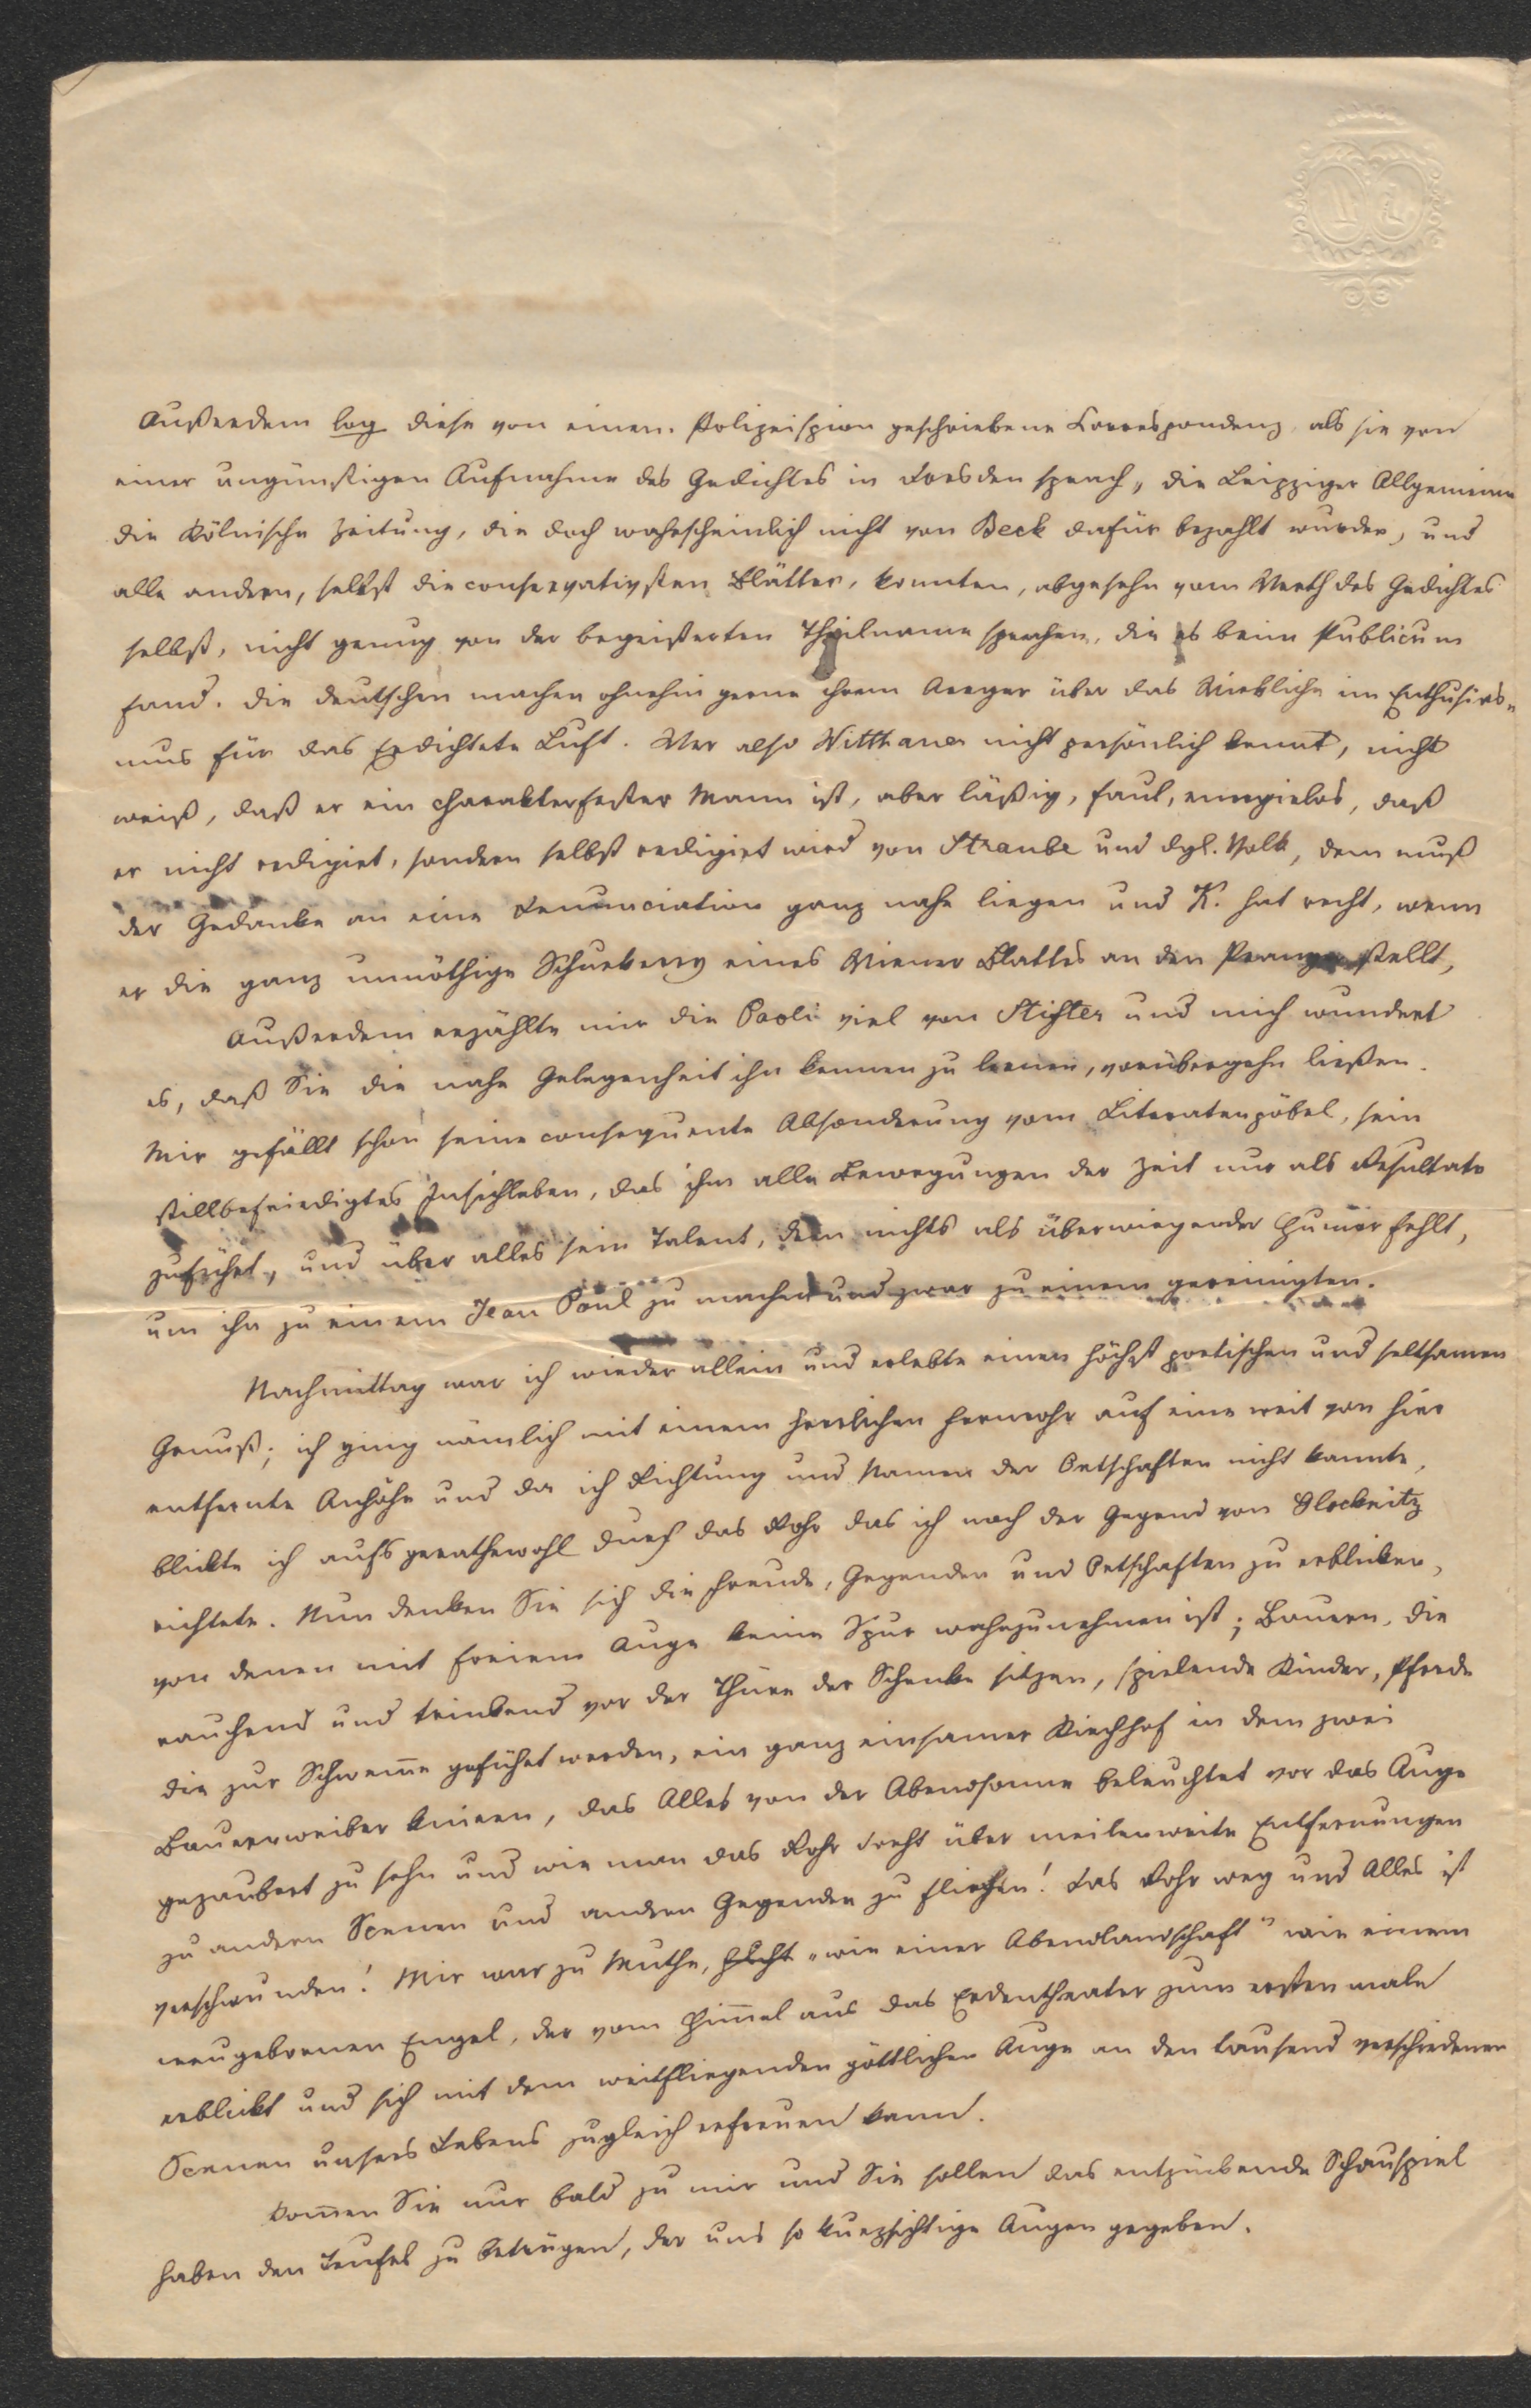 Außerdem log diese von einem Polizeispion geschriebene Correspondenz, als sie von
einer ungünstigen Aufnahme des Gedichtes in Dresden sprach, die Leipziger Allgemeine
die Kölnische Zeitung, die doch wahrscheinlich nicht von Beck dafür bezahlt wurden, und
alle andern, selbst die conservativsten Blätter, konnten, abgesehn vom Werth des Gedichtes
selbst, nicht genug von der begeisterten Theilname sprechen, die es beim Publicum
fand. Die Deutschen machen ohnehin gerne ihrem Aerger über das Wirkliche im Enthusias-
mus für das Erdichtete Luft. Wer also Witthauer nicht persönlich kennt, nicht
weiß, daß er ein charakterfester Mann ist, aber läßig, faul, energielos, daß
er nicht redigirt, sondern selbst redigirt wird von Straube und dgl. Volk, dem muß
der Gedanke an eine Denunciation ganz nahe liegen und K. hat recht, wenn
er die ganz unnöthige Schurkerey eines Wiener Blattes an den Pranger stellt,
Außerdem erzählte mir die Paoli viel von Stifter und mich wundert
es, daß Sie die nahe Gelegenheit ihn kennen zu lernen, vorübergehn ließen.
Mir gefällt schon seine consequente Absonderung vom Literatenpöbel, sein
stillbefriedigtes Insichleben, das ihm alle Bewegungen der Zeit nur als Resultate
zuführt, und über alles sein Talent, dem nichts als überwiegender Humor fehlt,
um ihn zu einem Jean Paul zu machen und zwar zu einem gereinigten.
Nachmittag war ich wieder allein und erlebte einen höchst poetischen und seltsamen
Genuß; ich ging nämlich mit einem herrlichen Fernrohr auf eine weit von hier
entfernte Anhöhe und da ich Richtung und Namen der Ortschaften nicht kannte,
blickte ich aufs gerathewohl durch das Rohr das ich nach der Gegend von Glocknitz
richtete. Nun denken Sie sich die Freude, Gegenden und Ortschaften zu erblicken,
von denen mit freiem Auge keine Spur wahrzunehmen ist; Bauern, die
rauchend und trinkend vor der Thüre der Schenke sitzen, spielende Kinder, Pferde
die zur Schwem̄e geführt werden, ein ganz einsamer Kirchhof in dem zwei
Bauernweiber knieen, das Alles von der Abendsonne beleuchtet vor das Auge
gezaubert zu sehn und wie man das Rohr dreht über meilenweite Entfernungen
zu andern Scenen und andern Gegenden zu fliehen! Das Rohr weg und Alles ist
verschwunden! Mir war zu Muthe, „wie einer Abendlandschaft" wie einem
neugebornen Engel, der vom Him̄el aus das Erdentheater zum erstenmale
erblickt und sich mit dem weitfliegenden göttlichen Auge an den tausend verschiedenen
Scenen unsers Lebens zugleich erfreuen kann.
Kom̄en Sie nur bald zu mir und Sie sollen das entzückende Schauspiel
haben den Teufel zu betrügen, der uns so kurzsichtige Augen gegeben.